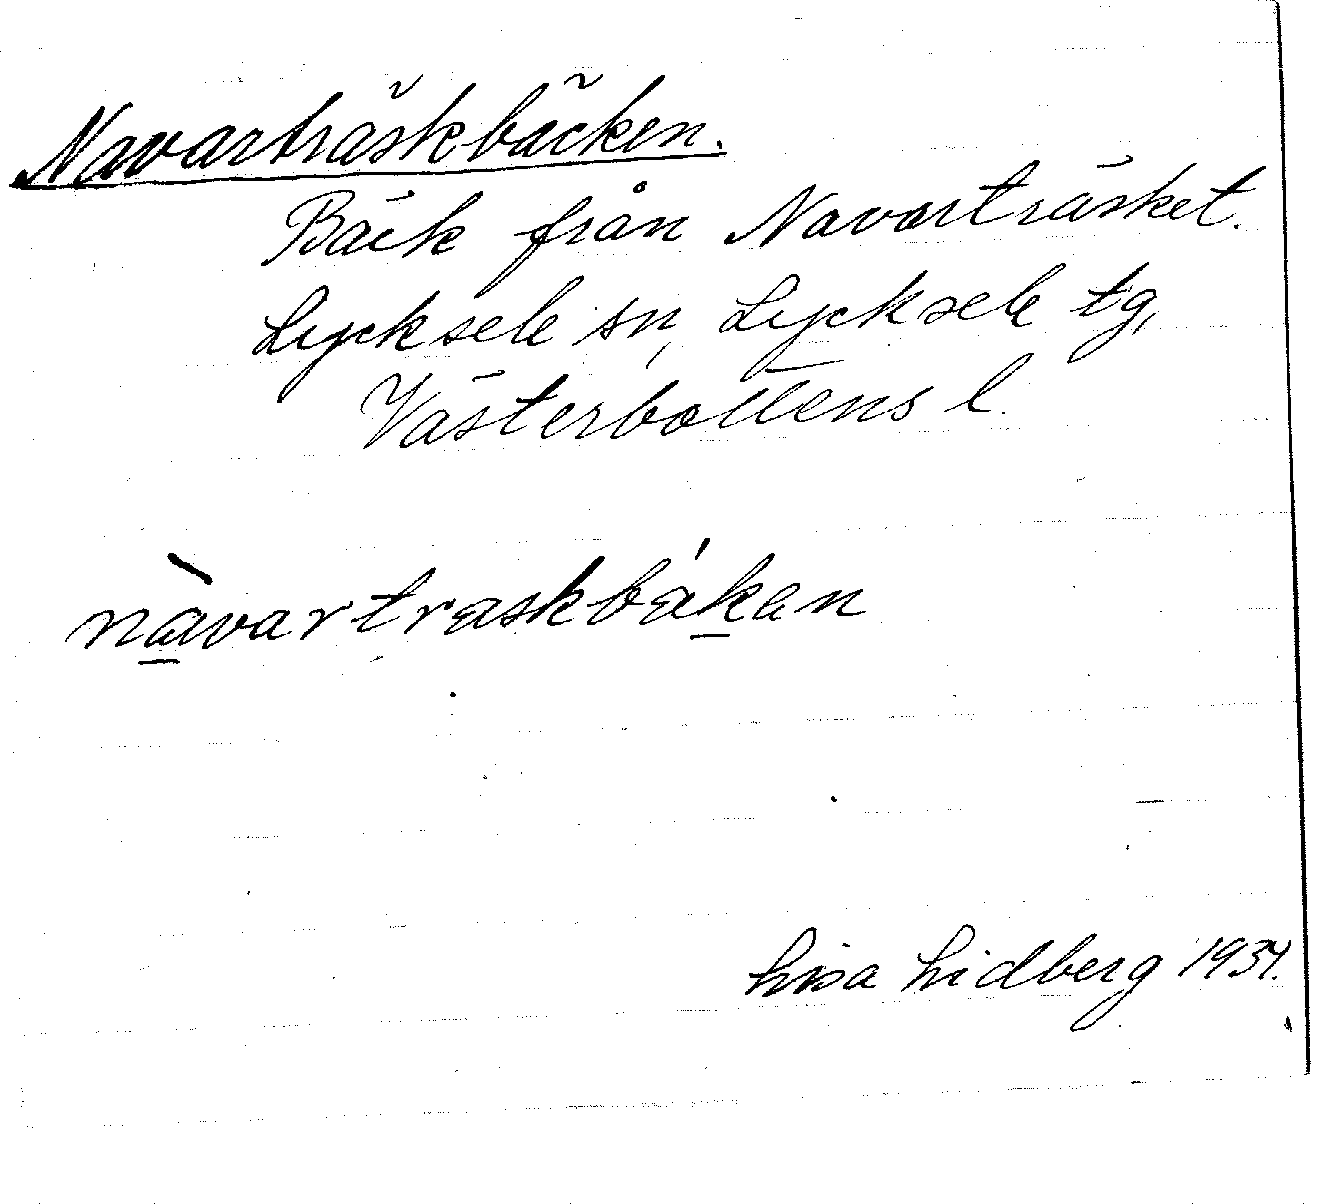 Navarträskbäcken.
Bäck från Navarträsket.
Lycksele sn, Lycksele tg,
Västerbottens l.
nàvartraskbákan
Lisa Lidberg 1934.